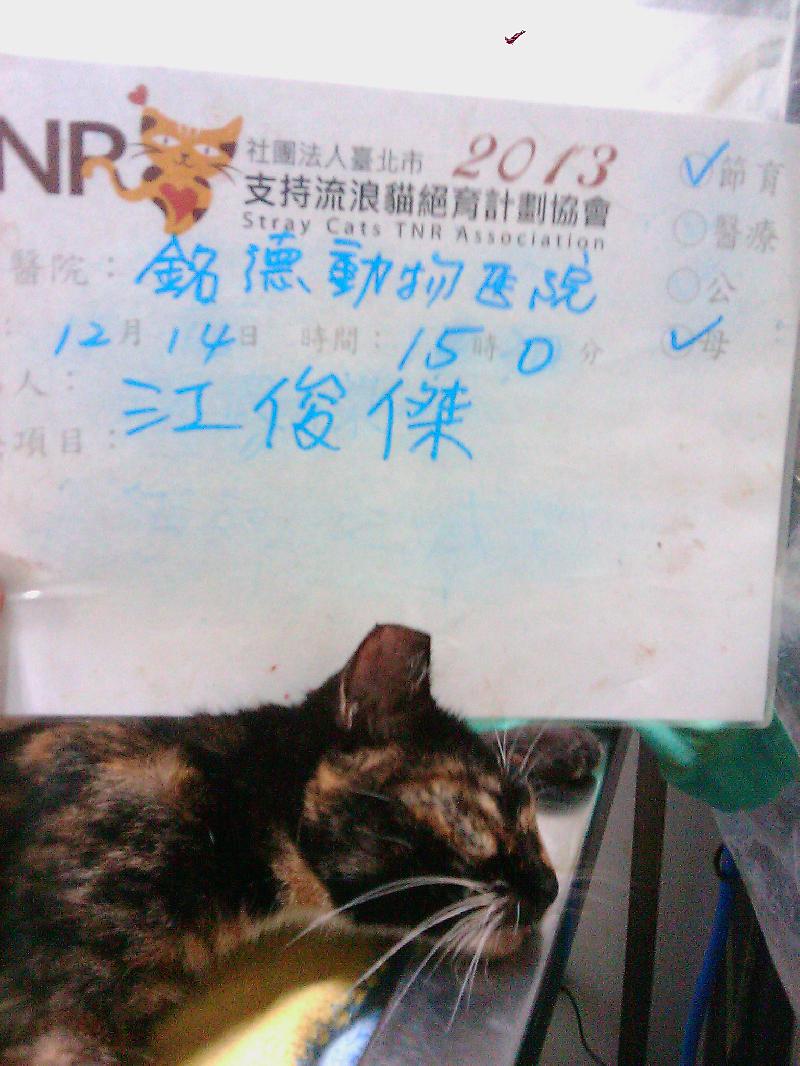 TNR 社團法人臺北市 2013
支持流浪貓絕育計劃協會
Stray Cats TNR Association
節育
醫療
公
母
醫院：銘德動物医院
：12月14日 時間：15時0分
人：江俊傑
項目：